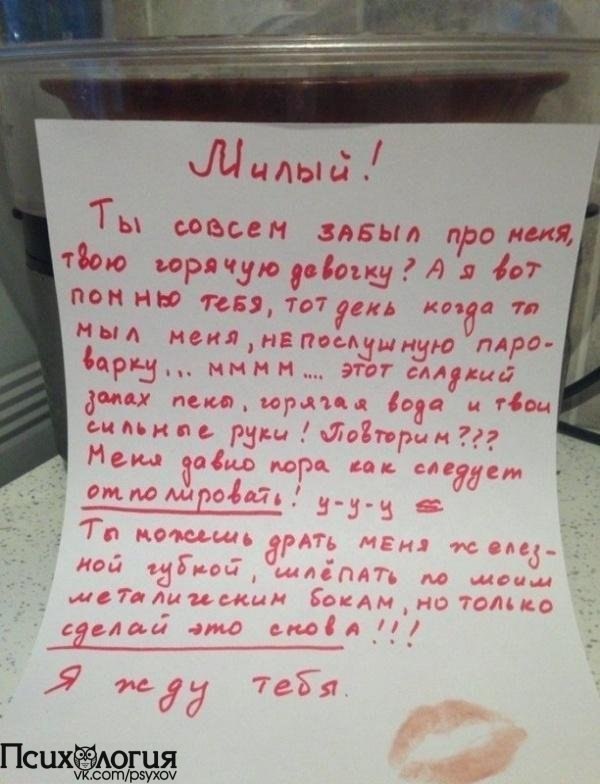 Милый!
Ты совсем забыл про меня,
твою горячую девочку? А я вот
помню тебя, тот день когда ты
мыл меня, непослушную паро-
варку... мммм.... этот сладкий
запах пены, горячая вода и твои
сильные руки! Повторим???
Меня давно пора как следует
отполировать! у-у-у
Ты можешь драть меня желез-
ной губкой, шлёпать по моим
металическим бокам, но только
сделай это снова!!!
Я жду тебя.
Психология
vk.com/psyxov